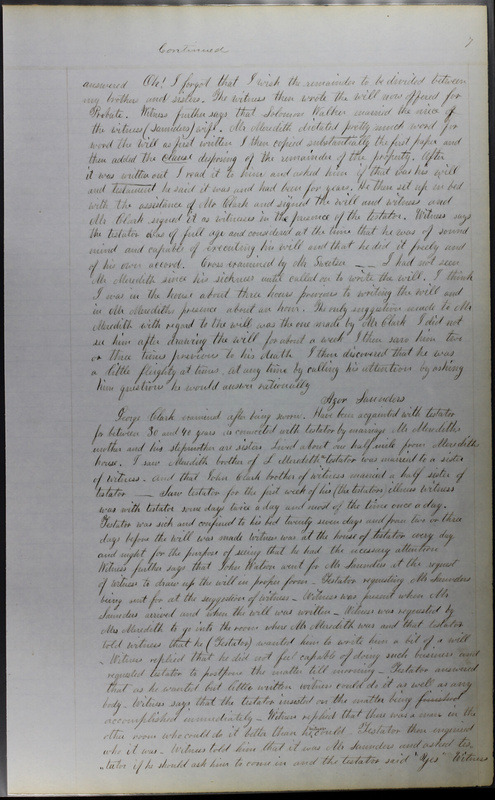 7
Continued
answered Oh! I forgot that I wish the remainder to be divided between
my brothers and sisters. The witness then wrote the will now offered for
Probate. Witness further says that Solomon Walker married the niece of
the witness (Saunders) wife. Mr Meredith dictated pretty much word for
word the will as first written I then copied substantially the first paper and
then added the clause disposing of the remainder of the property. After
it was written out I read it to him and asked him if that was his will
and testament he said it was and had been for years. He then set up in bed
with the assistance of Mr Clark and signed the will and witness and
Mr Clark signed it as witnesses in the presence of the testator. Witness says
the testator was of full age and considered at the time that he was of sound
mind and capable of executing his will and that he did it freely and
of his own accord. Cross examined by Mr Sweetser — I had not seen
Mr Meredith since his sickness until called on to write the will. I think
I was in the house about three hours previous to writing the will and
in Mr Merediths presence about an hour. The only suggestion made to Mr
Meredith with regard to the will was the one made by Mr Clark I did not
see him after drawing the will for about a week I then saw him two
or three times previous to his death. I then discovered that he was
a little flighty at times. at any time by calling his attention by asking
him questions he would answer rationally
Azor Saunders
George Clark examined after being sworn. Have been acquainted with testator
for between 30 and 40 years is connected with testator by marriage Mr Merediths
mother and his stepmother are sisters Lived about one half mile from Merediths
house. I saw Meredith brother of L Meredith testator was married to a sister
of witness. And that John Clark brother of witness married a half sister of
testator — Saw testator for the first week of his (the testators) illness witness
was with testator some days twice a day and most of the time once a day.
Testator was sick and confined to his bed twenty seven days and from two or three
days before the will was made witness was at the house of testator every day
and night for the purpose of seeing that he had the necessary attention
Witness further says that John Watson went for Mr Saunders at the request
of witness to draw up the will in proper form – Testator requesting Mr Saunders
being sent for at the suggestion of witness – Witness was present when Mr
Saunders arrived and when the will was written – Witness was requested by
Mrs Meredith to go into the room where Mr Meredith was and that testator
told witness that he (Testator) wanted him to write him a bit of a will
– Witness replied that he did not feel capable of doing such business and
requested testator to postpone the matter till morning – Testator answered
that as he wanted but little written witness could do it as well as any
body. Witness says that the testator insisted on the matter being finished
accomplished immediately – Witness replied that there was a man in the
other room who could do it better than he witness could – Testator then enquired
who it was – Witness told him that it was Mr Saunders and asked tes-
-tator if he should ask him to come in and the testator said "Yes" Witness